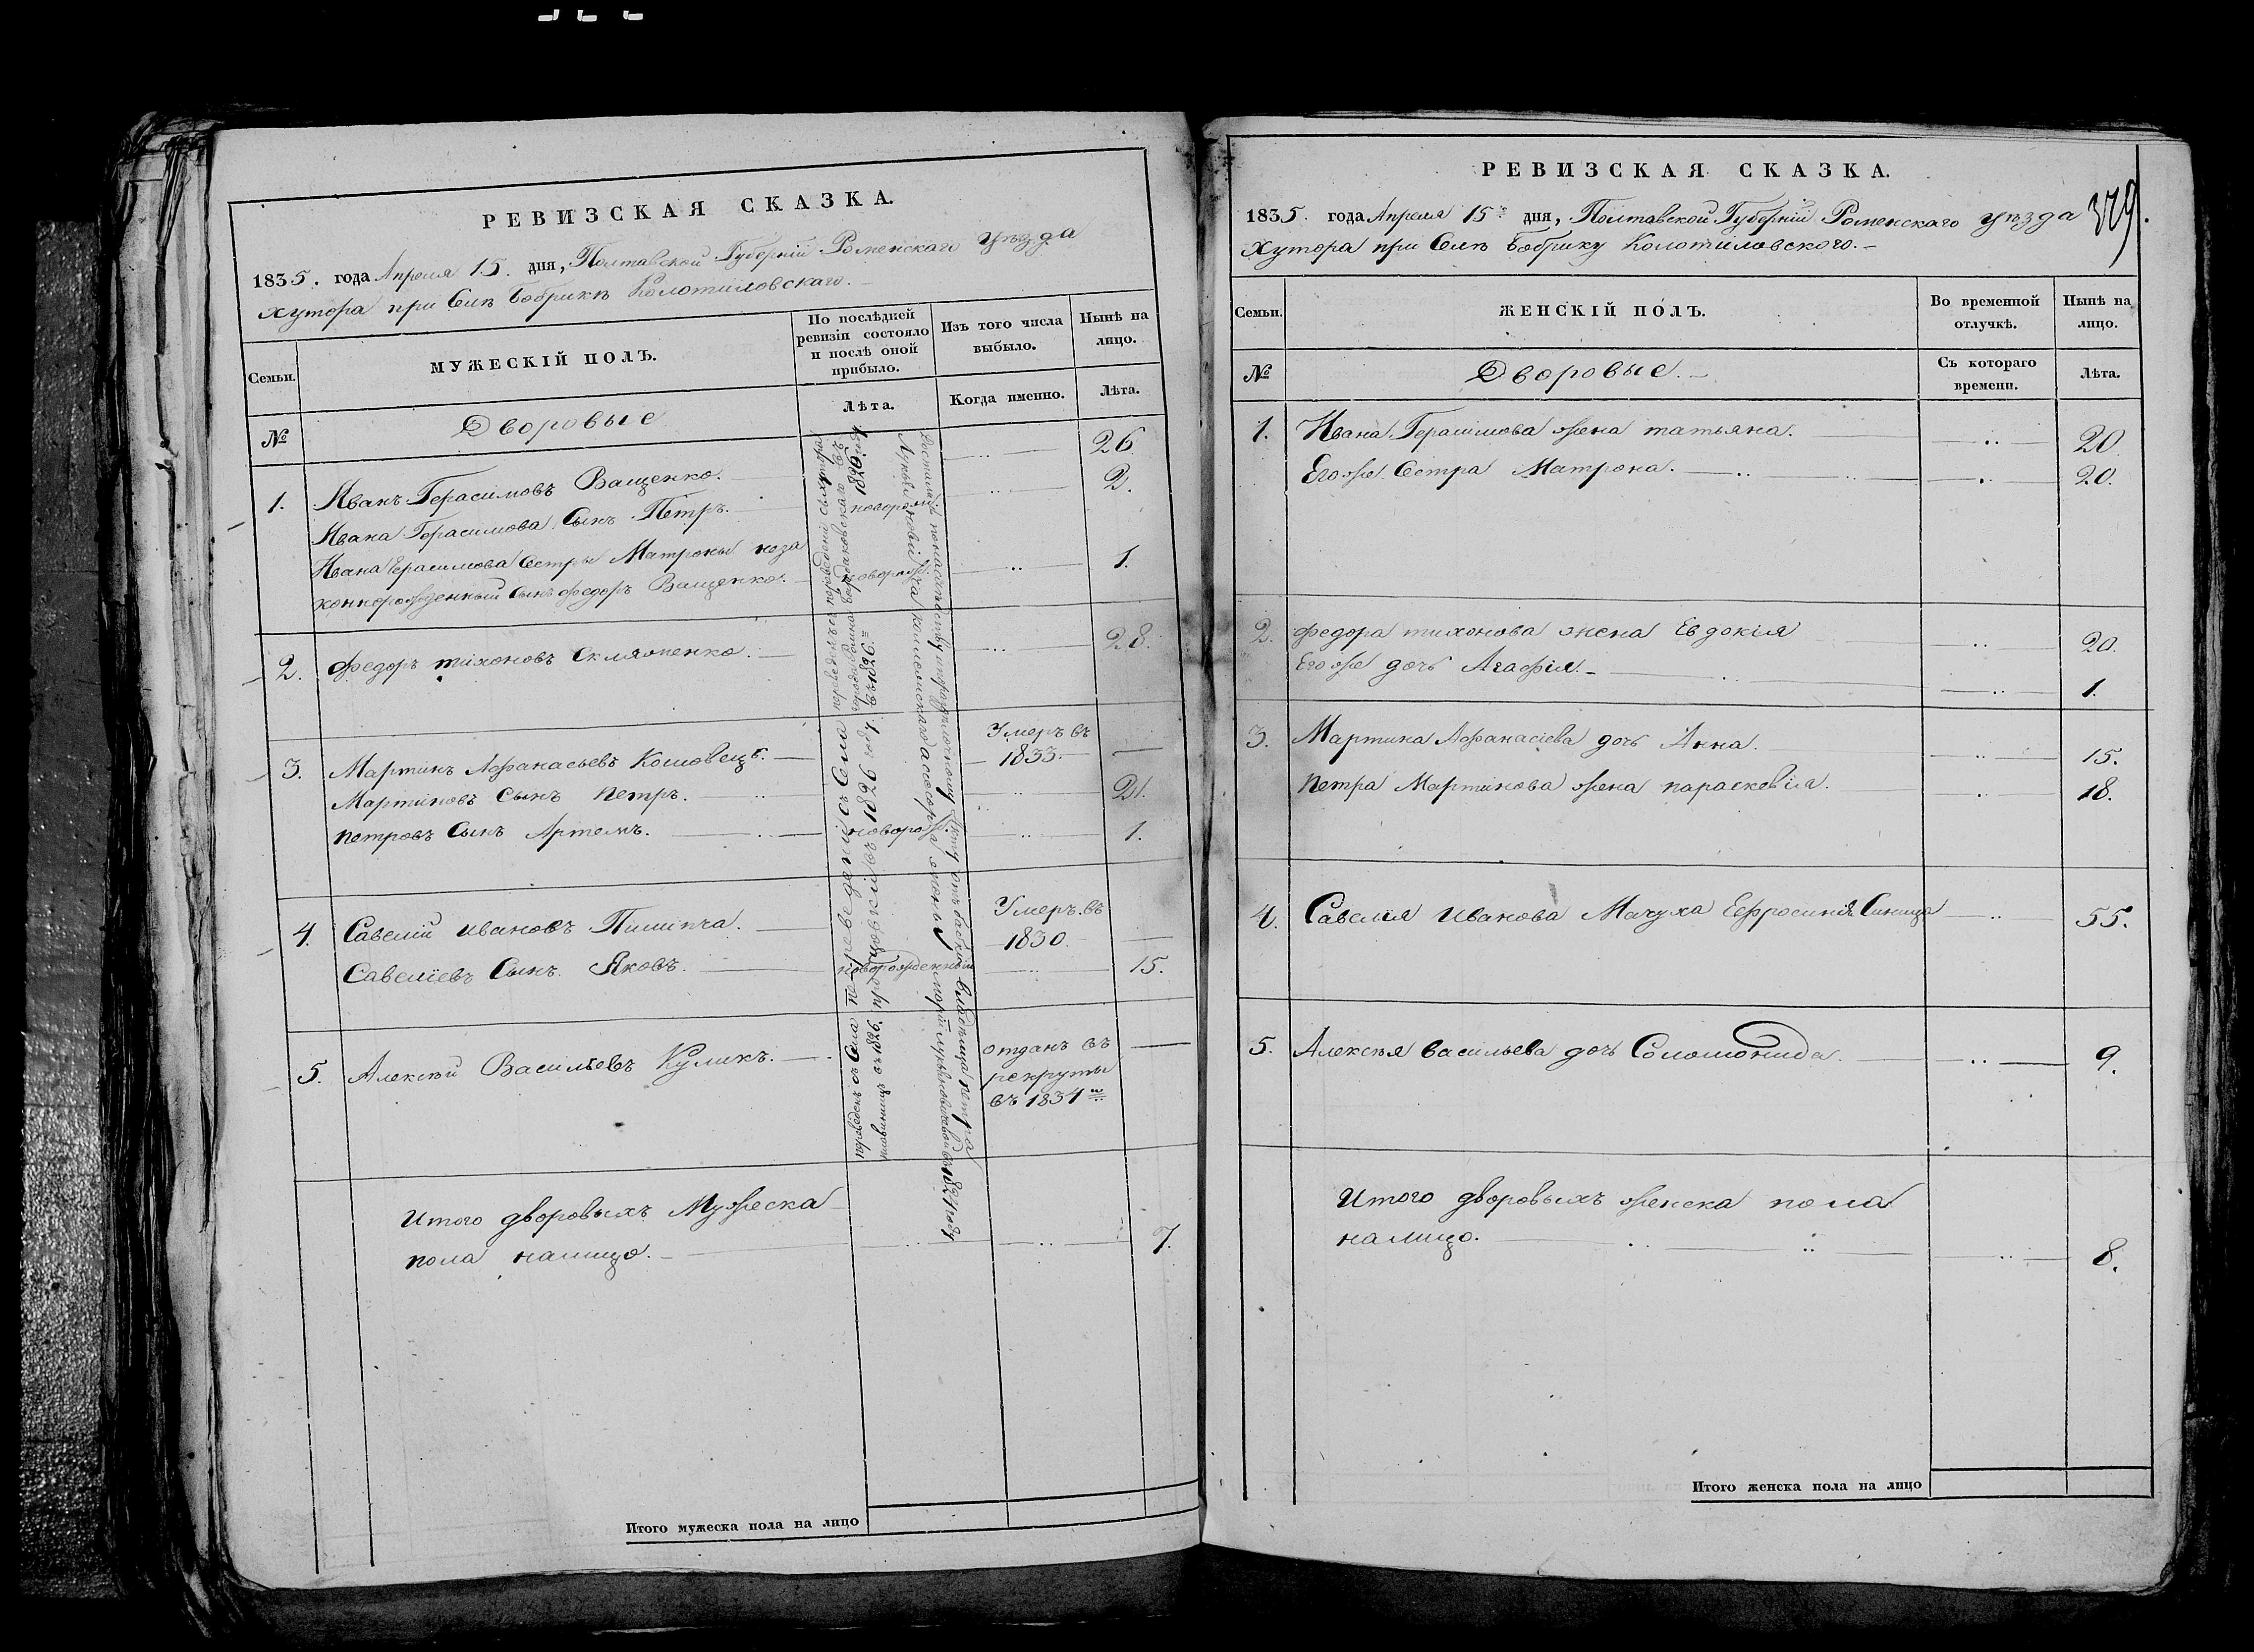 РЕВИЗСКАЯ СКАЗКА.
1835. года Апреля 15. дня, Полтавской Губерніи Роменскаго уѣзда
хутора при Селѣ Бобрикѣ Колотиловскаго.
Семьи.
МУЖЕСКІЙ ПОЛЪ.
По послѣдней ревизіи состояло и послѣ оной прибыло.
Изъ того числа выбыло.
Нынѣ на лицо.
№
Дворовые
Лѣта.
Когда именно.
Лѣта.
1. Иванъ Герасимовъ Ващенко. 26
Ивана Герасимова Сынъ Петръ. новорож. 2.
Ивана Герасимова Сестры Матроны неза
коннорожденный Сынъ Федоръ Ващенко. новорож. 1.
2. Федоръ тихоновъ Скляренко. 28.
въ 1826
3. Мартинъ Афанасьевъ Кошовецъ. Умеръ въ 1833.
Мартиновъ Сынъ Петръ. 21.
Петровъ Сынъ Артемъ. новорож. 1.
переведены съ Села
въ 1826 году.
4. Савелій Ивановъ Пилипча. Умеръ въ 1830.
Савеліевъ Сынъ Яковъ. новорожденный 15.
5. Алексѣй Васильевъ Куликъ. отданъ въ рекруты въ 1834
переведенъ съ Села
въ 1826.
Итого дворовыхъ Мужеска
пола налицо. 7.
Итого мужеска пола на лицо
РЕВИЗСКАЯ СКАЗКА.
379.
1835. года Апреля 15 дня, Полтавской Губерніи Роменскаго уѣзда
хутора при Селѣ Бобрику Колотиловского.
Семьи.
ЖЕНСКІЙ ПОЛЪ.
Во временной отлучкѣ.
Нынѣ на лицо.
№
Дворовые.
Съ котораго времени.
Лѣта.
1. Ивана Герасимова жена татьяна. 20
Его же Сестра Матрона. 20.
2. Федора тихонова жена Евдокія 20.
Его же дочь Агафія. 1.
3. Мартина Афанасіева дочь Анна. 15.
Петра Мартинова жена парасковія. 18.
4. Савелія Иванова Мачуха Ефросинія Синица 55.
5. Алексѣя васильева дочь Соломонида. 9.
Итого дворовыхъ женска пола
налицо. 8.
Итого женска пола на лицо